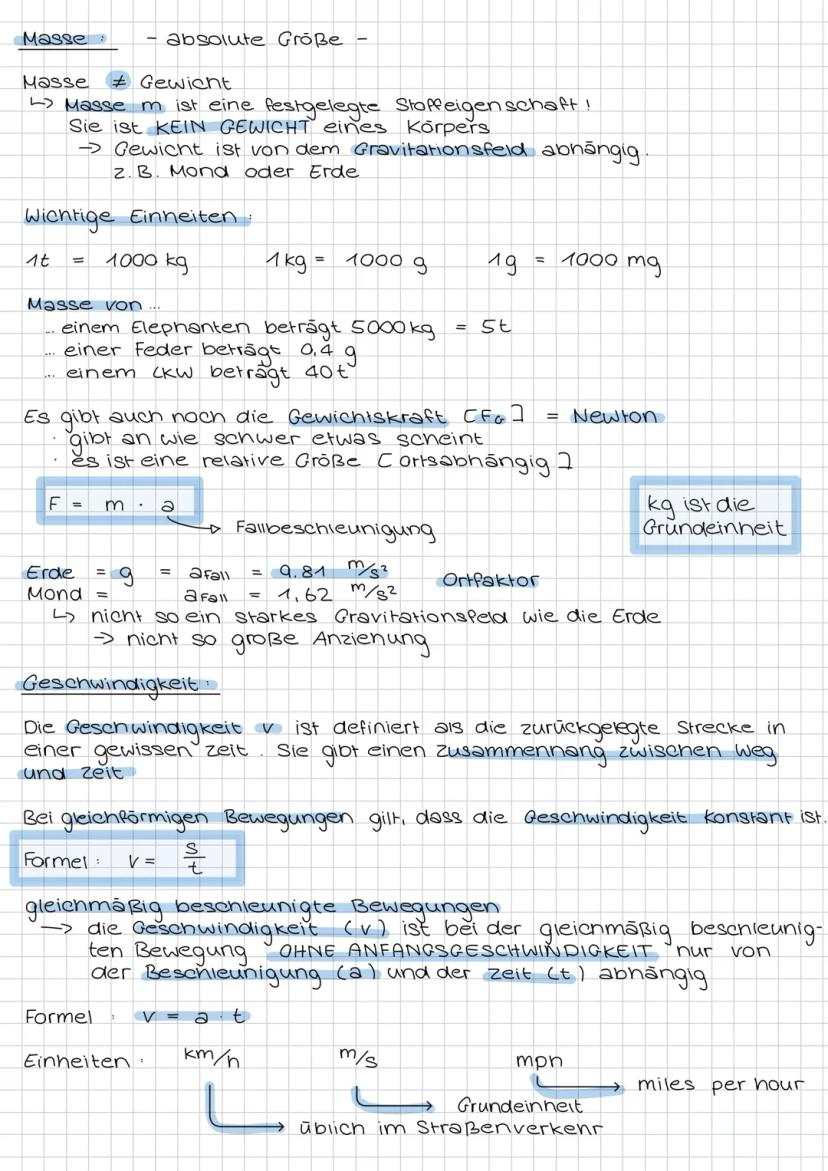 Masse: - absolute Größe -
Masse ≠ Gewicht
↳ Masse m ist eine festgelegte Stoffeigenschaft!
Sie ist KEIN GEWICHT eines Körpers
→ Gewicht ist von dem Gravitationsfeld abhängig.
z.B. Mond oder Erde
Wichtige Einheiten:
1t = 1000 kg 1kg = 1000 g 1g = 1000 mg
Masse von ...
... einem Elephanten beträgt 5000kg = 5t
... einer Feder beträgt 0,4 g
... einem LKW beträgt 40t
Es gibt auch noch die Gewichtskraft [FG] = Newton
· gibt an wie schwer etwas scheint
· es ist eine relative Größe [ortsabhängig]
F = m · a
→ Fallbeschleunigung
kg ist die
Grundeinheit
Erde = g = aFall = 9.81 m/s²
Mond = aFall = 1,62 m/s²
Ortfaktor
↳ nicht so ein starkes Gravitationsfeld wie die Erde
→ nicht so große Anziehung
Geschwindigkeit:
Die Geschwindigkeit v ist definiert als die zurückgelegte Strecke in
einer gewissen Zeit. Sie gibt einen Zusammenhang zwischen Weg
und Zeit
Bei gleichförmigen Bewegungen gilt, dass die Geschwindigkeit konstant ist.
Formel: v = s/t
gleichmäßig beschleunigte Bewegungen
→ die Geschwindigkeit (v) ist bei der gleichmäßig beschleunig-
ten Bewegung OHNE ANFANGSGESCHWINDIGKEIT nur von
der Beschleunigung (a) und der Zeit (t) abhängig
Formel: v = a · t
Einheiten: km/h m/s mph
→ miles per hour
→ Grundeinheit
→ üblich im Straßenverkehr